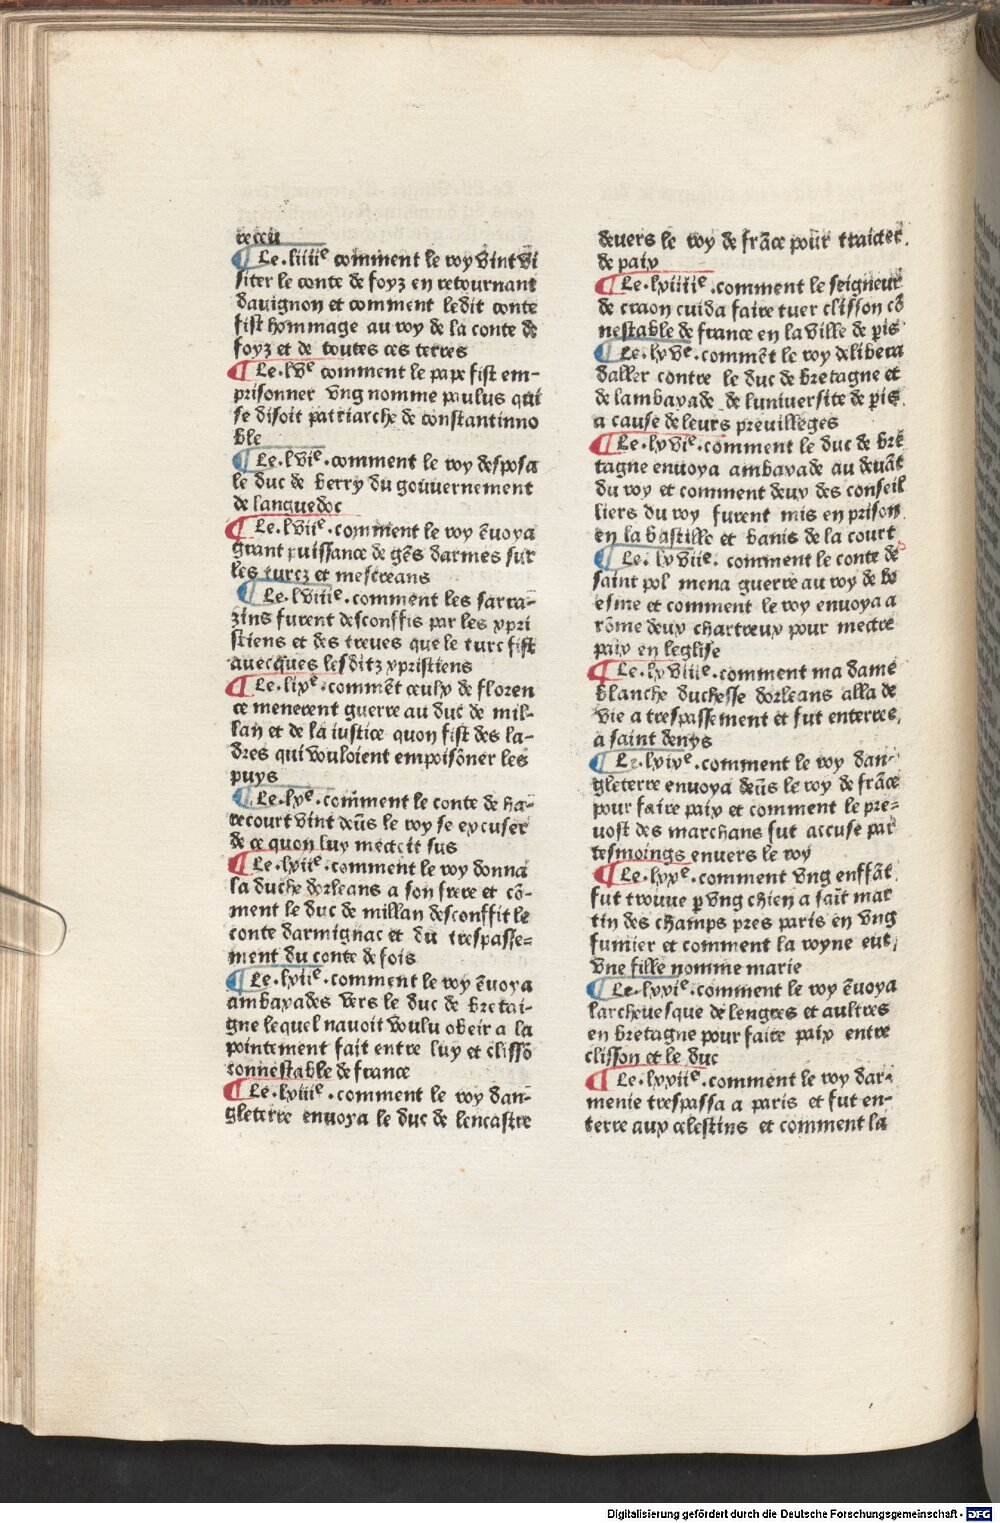 receu
¶ Le .liiiie comment le roy vint vi
siter le conte de foyz en retournant
dauignon et comment ledit conte
fist hommage au roy de la conte de
foyz et de toutes ces terres
¶ Le .lve comment le pape fist em-
prisonner vng nomme paulus qui
se disoit patriarche de constantinno
ble
¶ Le .lvie .comment le roy desposa
le duc de berry du gouuernement
de languedoc
¶ Le .lviie .comment le roy ẽuoya
grant puissance de gẽs darmes sur
les turcz et mescreans
¶ Le .lviiie .comment les sarra-
zins furent desconffis par les xpri
stiens et des treues que le turc fist
auecques lesditz xpristiens
¶ Le .lixe .commẽt ceulx de floren
ce menerent guerre au duc de mil-
lan et de la iustice quon fist des la-
dres qui vouloient empoisõner les
puys
¶ Le .lxe .comment le conte de ha-
recourt vint deũs le roy se excuser
de ce quon luy mectoit sus
¶ Le .lxiie .comment le roy donna
la duche dorleans a son frere et cõ-
ment le duc de millan desconffit le
conte darmignac et du trespasse-
ment du conte de fois
¶ Le .lxiie .comment le roy ẽuoya
ambaxades vers le duc de bretai-
gne lequel nauoit voulu obeir a la
pointement fait entre luy et clissõ
connestable de france
¶ Le .lxiiie .comment le roy dan-
gleterre enuoya le duc de lencastre
deuers le roy de frãce pour traicter
de paix
¶ Le .lxiiiie .comment le seigneur
de craon cuida faire tuer clisson cõ
nestable de france en la ville de p̃is
¶ Le .lxve .commẽt le roy delibera
daller contre le duc de bretagne et
de lambaxade de luniuersite de p̃is
a cause de leurs preuilleges
¶ Le .lxvie .comment le duc de bre
tagne enuoya ambaxade au deuãt
du roy et comment deux des conseil
liers du roy furent mis en prison
en la bastille et banis de la court
¶ Le .lxviie .comment le conte de
saint pol mena guerre au roy de bo
esme et comment le roy enuoya a
rõme deux chartreux pour mectre
paix en leglise
¶ Le .lxviiie .comment ma dame
blanche duchesse dorleans alla de
vie a trespassement et fut enterree,
a saint denys
¶ Le .lxixe .comment le roy dan-
gleterre enuoya deũs le roy de frãce
pour faire paix et comment le pre-
uost des marchans fut accuse par
tesmoings enuers le roy
¶ Le .lxxe .comment vng enffãt
fut trouue p̱ vng chien a saĩt mar
tin des champs pres paris en vng
fumier et comment la royne eut,
vne fille nomme marie
¶ Le .lxxie .comment le roy ẽuoya
larcheuesque de lengres et aultres
en bretagne pour faire paix entre
clisson et le duc
¶ Le .lxxiie .comment le roy dar-
menie trespassa a paris et fut en-
terre aux celestins et comment la
Digitalisierung gefördert durch die Deutsche Forschungsgemeinschaft - DFG